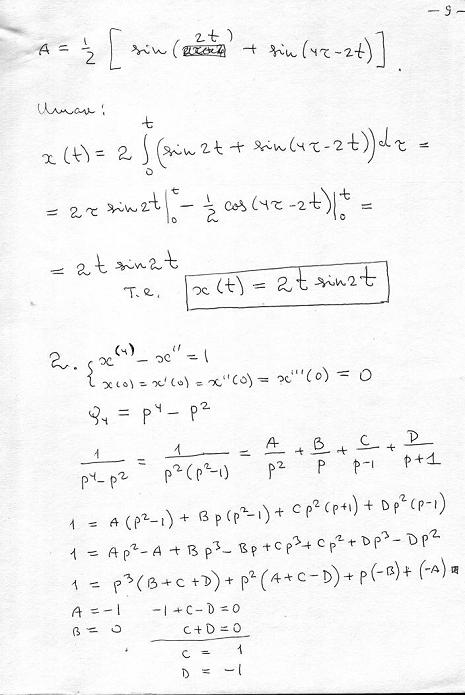 - 9 -
A = 1/2 [ sin(2t) + sin(4τ-2t) ].
Итак:
x(t) = 2 ∫₀ᵗ (sin 2t + sin(4τ-2t)) dτ =
= 2τ sin 2t |₀ᵗ - 1/2 cos(4τ-2t) |₀ᵗ =
= 2t sin 2t
т.е. x(t) = 2t sin 2t
2. { x⁽⁴⁾ - x'' = 1
x(0) = x'(0) = x''(0) = x'''(0) = 0
Q₄ = p⁴ - p²
1/(p⁴-p²) = 1/(p²(p²-1)) = A/p² + B/p + C/(p-1) + D/(p+1)
1 = A(p²-1) + Bp(p²-1) + Cp²(p+1) + Dp²(p-1)
1 = Ap² - A + Bp³ - Bp + Cp³ + Cp² + Dp³ - Dp²
1 = p³(B+C+D) + p²(A+C-D) + p(-B) + (-A)
A = -1 -1+C-D=0
B = 0 C+D=0
C = 1
D = -1